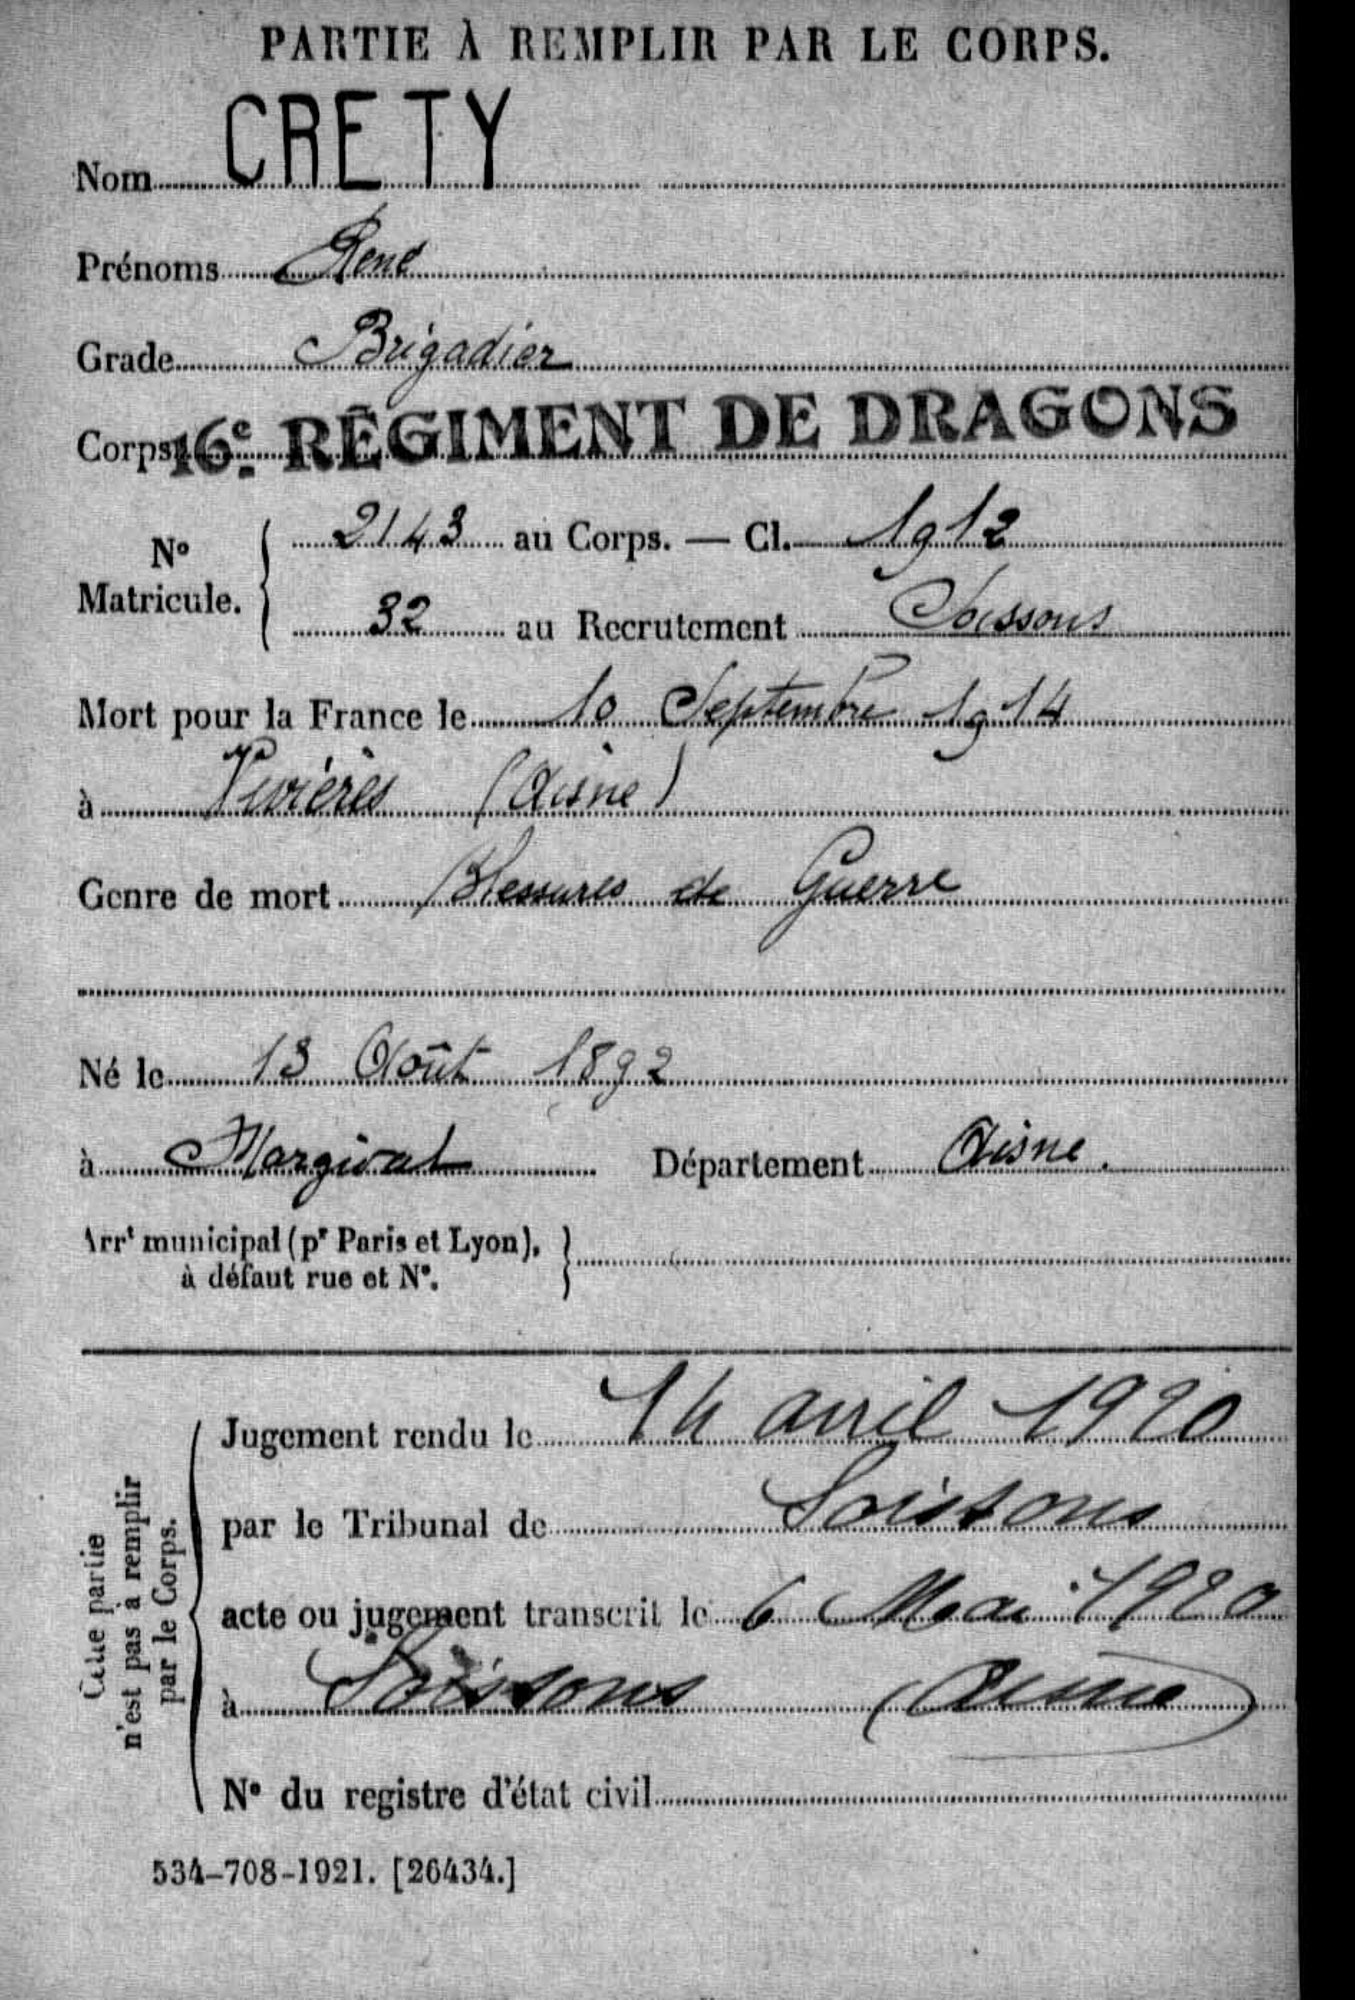 PARTIE À REMPLIR PAR LE CORPS.
Nom CRETY
Prénoms René
Grade Brigadier
Corps 16e. RÉGIMENT DE DRAGONS
No Matricule. { 2143 au Corps. — Cl. 1912
32 au Recrutement Soissons
Mort pour la France le 10 Septembre 1914
à Vivières (Aisne)
Genre de mort Blessures de Guerre
Né le 13 Août 1892
à Margival Département Aisne.
Arrt municipal (pr Paris et Lyon), }
à défaut rue et N°.
Cette partie
n'est pas à remplir
par le Corps.
Jugement rendu le 14 avril 1920
par le Tribunal de Soissons
acte ou jugement transcrit le 6 Mai 1920
à Soissons (Aisne)
N° du registre d'état civil
534-708-1921. [26434.]